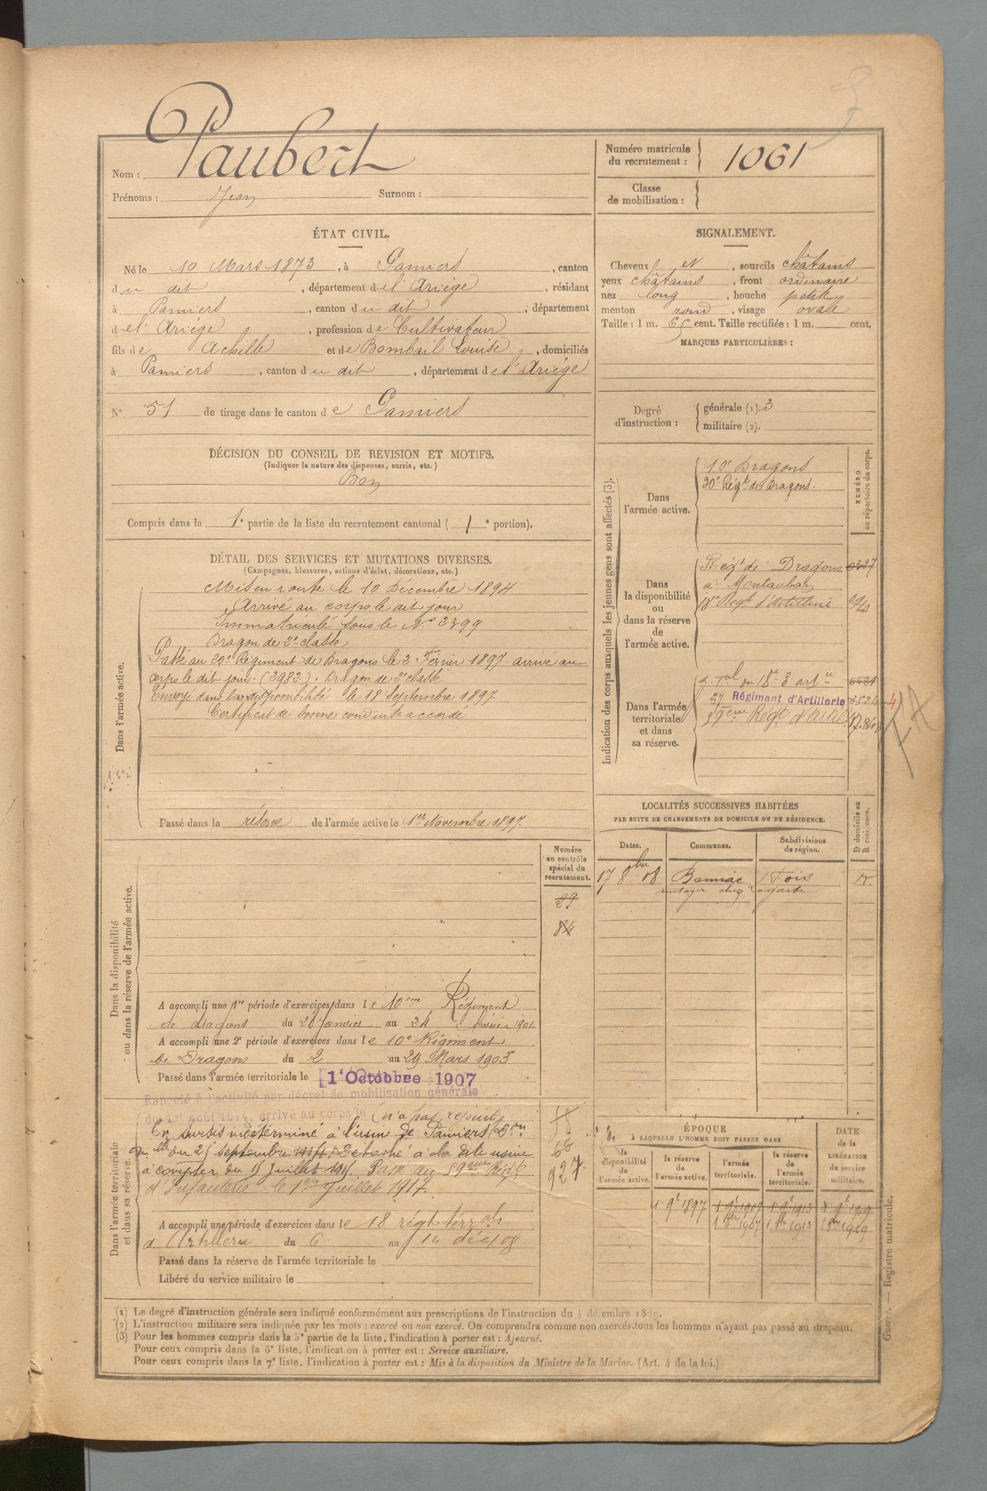 Nom : Paubert
Prénoms : Jean Surnom :
Numéro matricule du recrutement : 1061
Classe de mobilisation :
ÉTAT CIVIL.
Né le 10 Mars 1873, à Pamiers, canton
du dit, département de l'Ariège, résidant
à Pamiers, canton du dit, département
de l'Ariège, profession de Cultivateur
fils de Achille et de Bombail Louise, domiciliés
à Pamiers, canton du dit, département de l'Ariège
N° 51 de tirage dans le canton de Pamiers
SIGNALEMENT.
Cheveux et, sourcils châtains
yeux châtains, front ordinaire
nez long, bouche petite
menton rond, visage ovale
Taille : 1 m. 65 cent. Taille rectifiée : 1 m. cent.
MARQUES PARTICULIÈRES :
Degré d'instruction : générale (1). 3
militaire (2).
DÉCISION DU CONSEIL DE REVISION ET MOTIFS.
(Indiquer la nature des dispenses, sursis, etc.)
Bon
Compris dans la 1e partie de la liste du recrutement cantonal ( 1 e portion).
DÉTAIL DES SERVICES ET MUTATIONS DIVERSES.
(Campagnes, blessures, actions d'éclat, décorations, etc.)
Dans l'armée active.
Mis en route le 10 Décembre 1894
Arrivé au corps le dit jour
Immatriculé sous le N° 2399
Dragon de 2e classe
Passé au 20e Régiment de Dragons le 2 Février 1897 arrivé au
corps le dit jour. (3982). Dragon de 2e classe
Envoyé dans la disponibilité le 18 Septembre 1897
Certificat de bonne conduite accordé
Passé dans la réserve de l'armée active le 1er Novembre 1897
Indication des corps auxquels les jeunes gens sont affectés (3).
NUMÉRO au répertoire du corps.
Dans l'armée active.
10e Dragons
20e Régt de Dragons.
Dans la disponibilité ou dans la réserve de l'armée active.
Régt de Dragons
à Montauban
18e Regt d'Artillerie
Dans l'armée territoriale et dans sa réserve.
57 Régiment d'Artillerie
Régt
LOCALITÉS SUCCESSIVES HABITÉES
PAR SUITE DE CHANGEMENTS DE DOMICILE OU DE RÉSIDENCE.
Dates. Communes. Subdivisions de région. D domicile ou R résidence.
17 8bre 08 Bonnac Foix
Dans la disponibilité ou dans la réserve de l'armée active.
Numéro au contrôle spécial du recrutement.
A accompli une 1re période d'exercices dans le 10eme Régiment
de dragons du 28 janvier au 24 février 1901
A accompli une 2e période d'exercices dans le 10e Régiment
de Dragons du 2 au 29 Mars 1905
Passé dans l'armée territoriale le 1er Octobre 1907
Dans l'armée territoriale et dans sa réserve.
Rappelé à l'activité par décret de mobilisation générale
du 1er Août 1914, arrivé au corps le
En sursis indéterminé à l'usine de Pamiers
du 25 septembre Détaché à la dite usine
à compter du Juillet Passé au 59eme Régt
d'Infanterie le 1er Juillet 1917.
927
A accompli une période d'exercices dans le 18 régt terral
d'Artillerie du 6 au 14 déc 08
Passé dans la réserve de l'armée territoriale le
Libéré du service militaire le
ÉPOQUE
À LAQUELLE L'HOMME DOIT PASSER DANS
la disponibilité de l'armée active. la réserve de l'armée active. l'armée territoriale. la réserve de l'armée territoriale.
DATE de la LIBÉRATION du service militaire.
Guerre. — Registre matricule.
(1) Le degré d'instruction générale sera indiqué conformément aux prescriptions de l'instruction du 4 décembre 1889.
(2) L'instruction militaire sera indiquée par les mots : exercé ou non exercé. On comprendra comme non exercés tous les hommes n'ayant pas passé au drapeau.
(3) Pour les hommes compris dans la 5e partie de la liste, l'indication à porter est : Ajourné.
Pour ceux compris dans la 6e liste, l'indication à porter est : Service auxiliaire.
Pour ceux compris dans la 7e liste, l'indication à porter est : Mis à la disposition du Ministre de la Marine. (Art. 4 de la loi.)